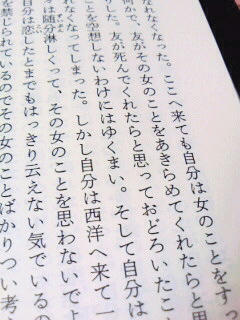 なれなくなった。ここへ来ても自分は女のことをすっ
何かで、友がその女のことをあきらめてくれたらと思
した。友が死んでくれたらと思っておどろいたこ
ことを空想しないわけにはゆくまい。そして自分は
れなくなってしまった。しかし自分は西洋へ来て一
は随分淋しくって、その女のことを思わないでよ
自分は恋したとまでもはっきり云えない気でいるの
を禁じられているのでその女のことばかりつい考